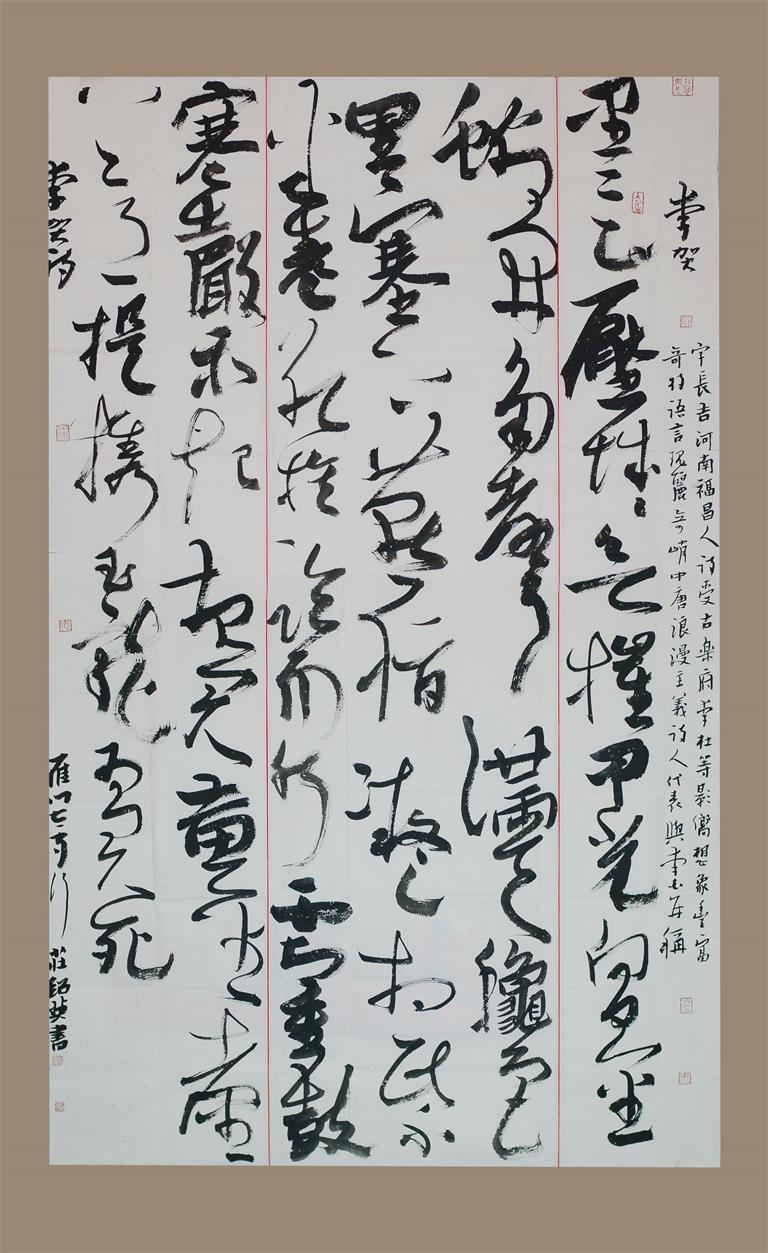 李贺
字長吉河南福昌人詩受古樂府李杜等影響想象豐富
奇特語言瑰麗奇峭中唐浪漫主義詩人代表與李白並稱
黑云压城城欲摧甲光向日金
鳞开角聲滿天龝色
里塞上燕脂凝夜紫
半卷红旗临易水霜重鼓
寒聲不起報君黄金臺
上意提携玉龍為君死
李贺詩
雁门太守行 莊 書